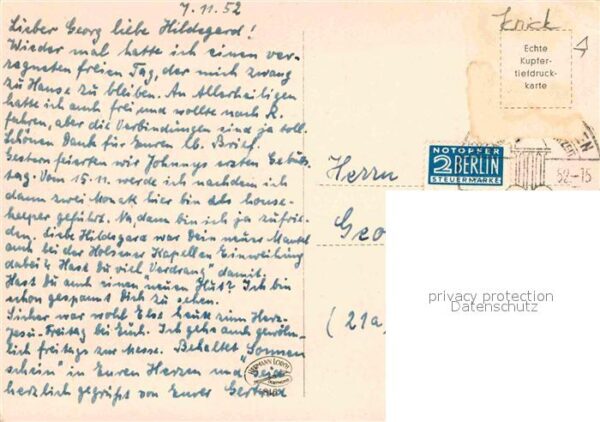 7.11.52
Lieber Georg liebe Hildegard!
Wieder mal hatte ich einen ver-
regneten freien Tag, der mich zwang
zu Hause zu bleiben. An Allerheiligen
hatte ich auch frei und wollte nach R.
fahren, aber die Verbindungen sind ja toll.
Schönen Dank für Euren lb. Brief.
Gestern feierten wir Johnnys ersten Gebüts
tag. Vom 15.11. werde ich nachdem ich
dann zwei Monate hier bin als house-
keeper geführt. Na, dann bin ich ja zufrie-
den. Liebe Hildegard war Dein neuer Mantel
auch bei der Holsener Kapellen Einweihung
dabei? Hast Du viel "Verdrang" damit.
Hast Du auch einen "neuen Hut"? Ich bin
schon gespannt Dich zu sehen.
Sicher war wohl Else heute zum Herz-
Jesu-Freitag bei Euch. Ich gehe auch gewöhn-
lich freitags zur Messe. Behaltet "Sonnen
schein" in Euren Herzen und seid
herzlich gegrüßt von Eurer Gertrud
Knick
Echte
Kupfer-
tiefdruck-
karte
NOTOPFER
2 BERLIN
STEUERMARKE
52.-15
Herrn
Geo
(21a)
privacy protection
Datenschutz
HERMANN LORCH
DORTMUND